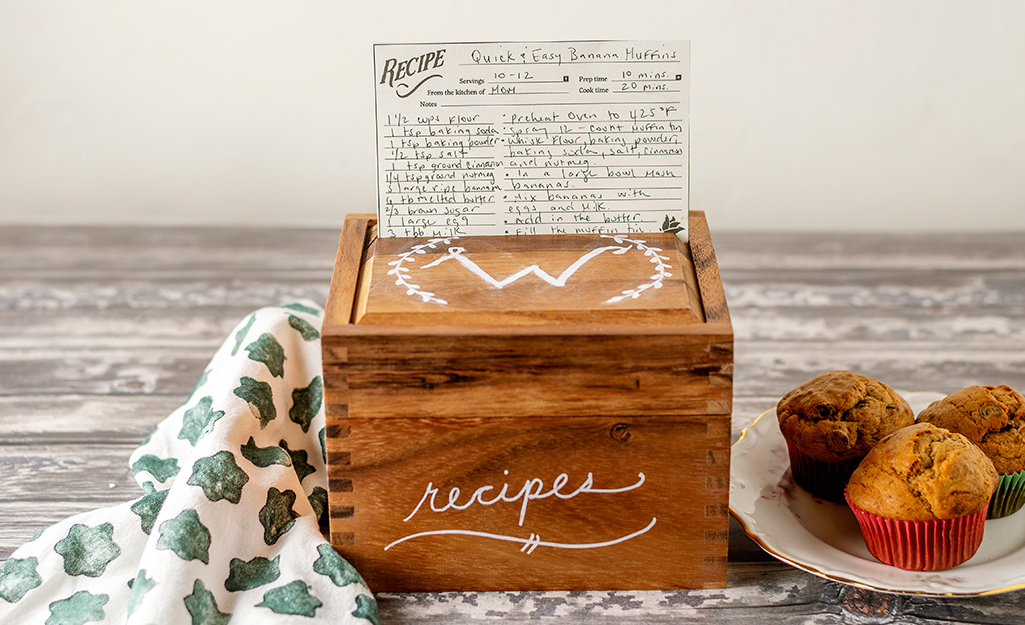 RECIPE Quick & Easy Banana Muffins
Servings 10-12 Prep time 10 mins.
From the kitchen of MOM Cook time 20 mins.
Notes
1 1/2 cups flour
1 tsp baking soda
1 tsp baking powder
1/2 tsp salt
1 tsp ground cinnamon
1/4 tsp ground nutmeg
3 large ripe banana
4 tb melted butter
2/3 brown sugar
1 large egg
3 tbb milk
• Preheat Oven to 425°F
• Spray 12-count muffin tin
• Whisk flour, baking powder,
baking soda, salt, cinnamon
and nutmeg.
• In a large bowl mash
bananas.
• Mix bananas with
eggs and milk.
• Add in the butter
• Fill the muffin tin
W
recipes